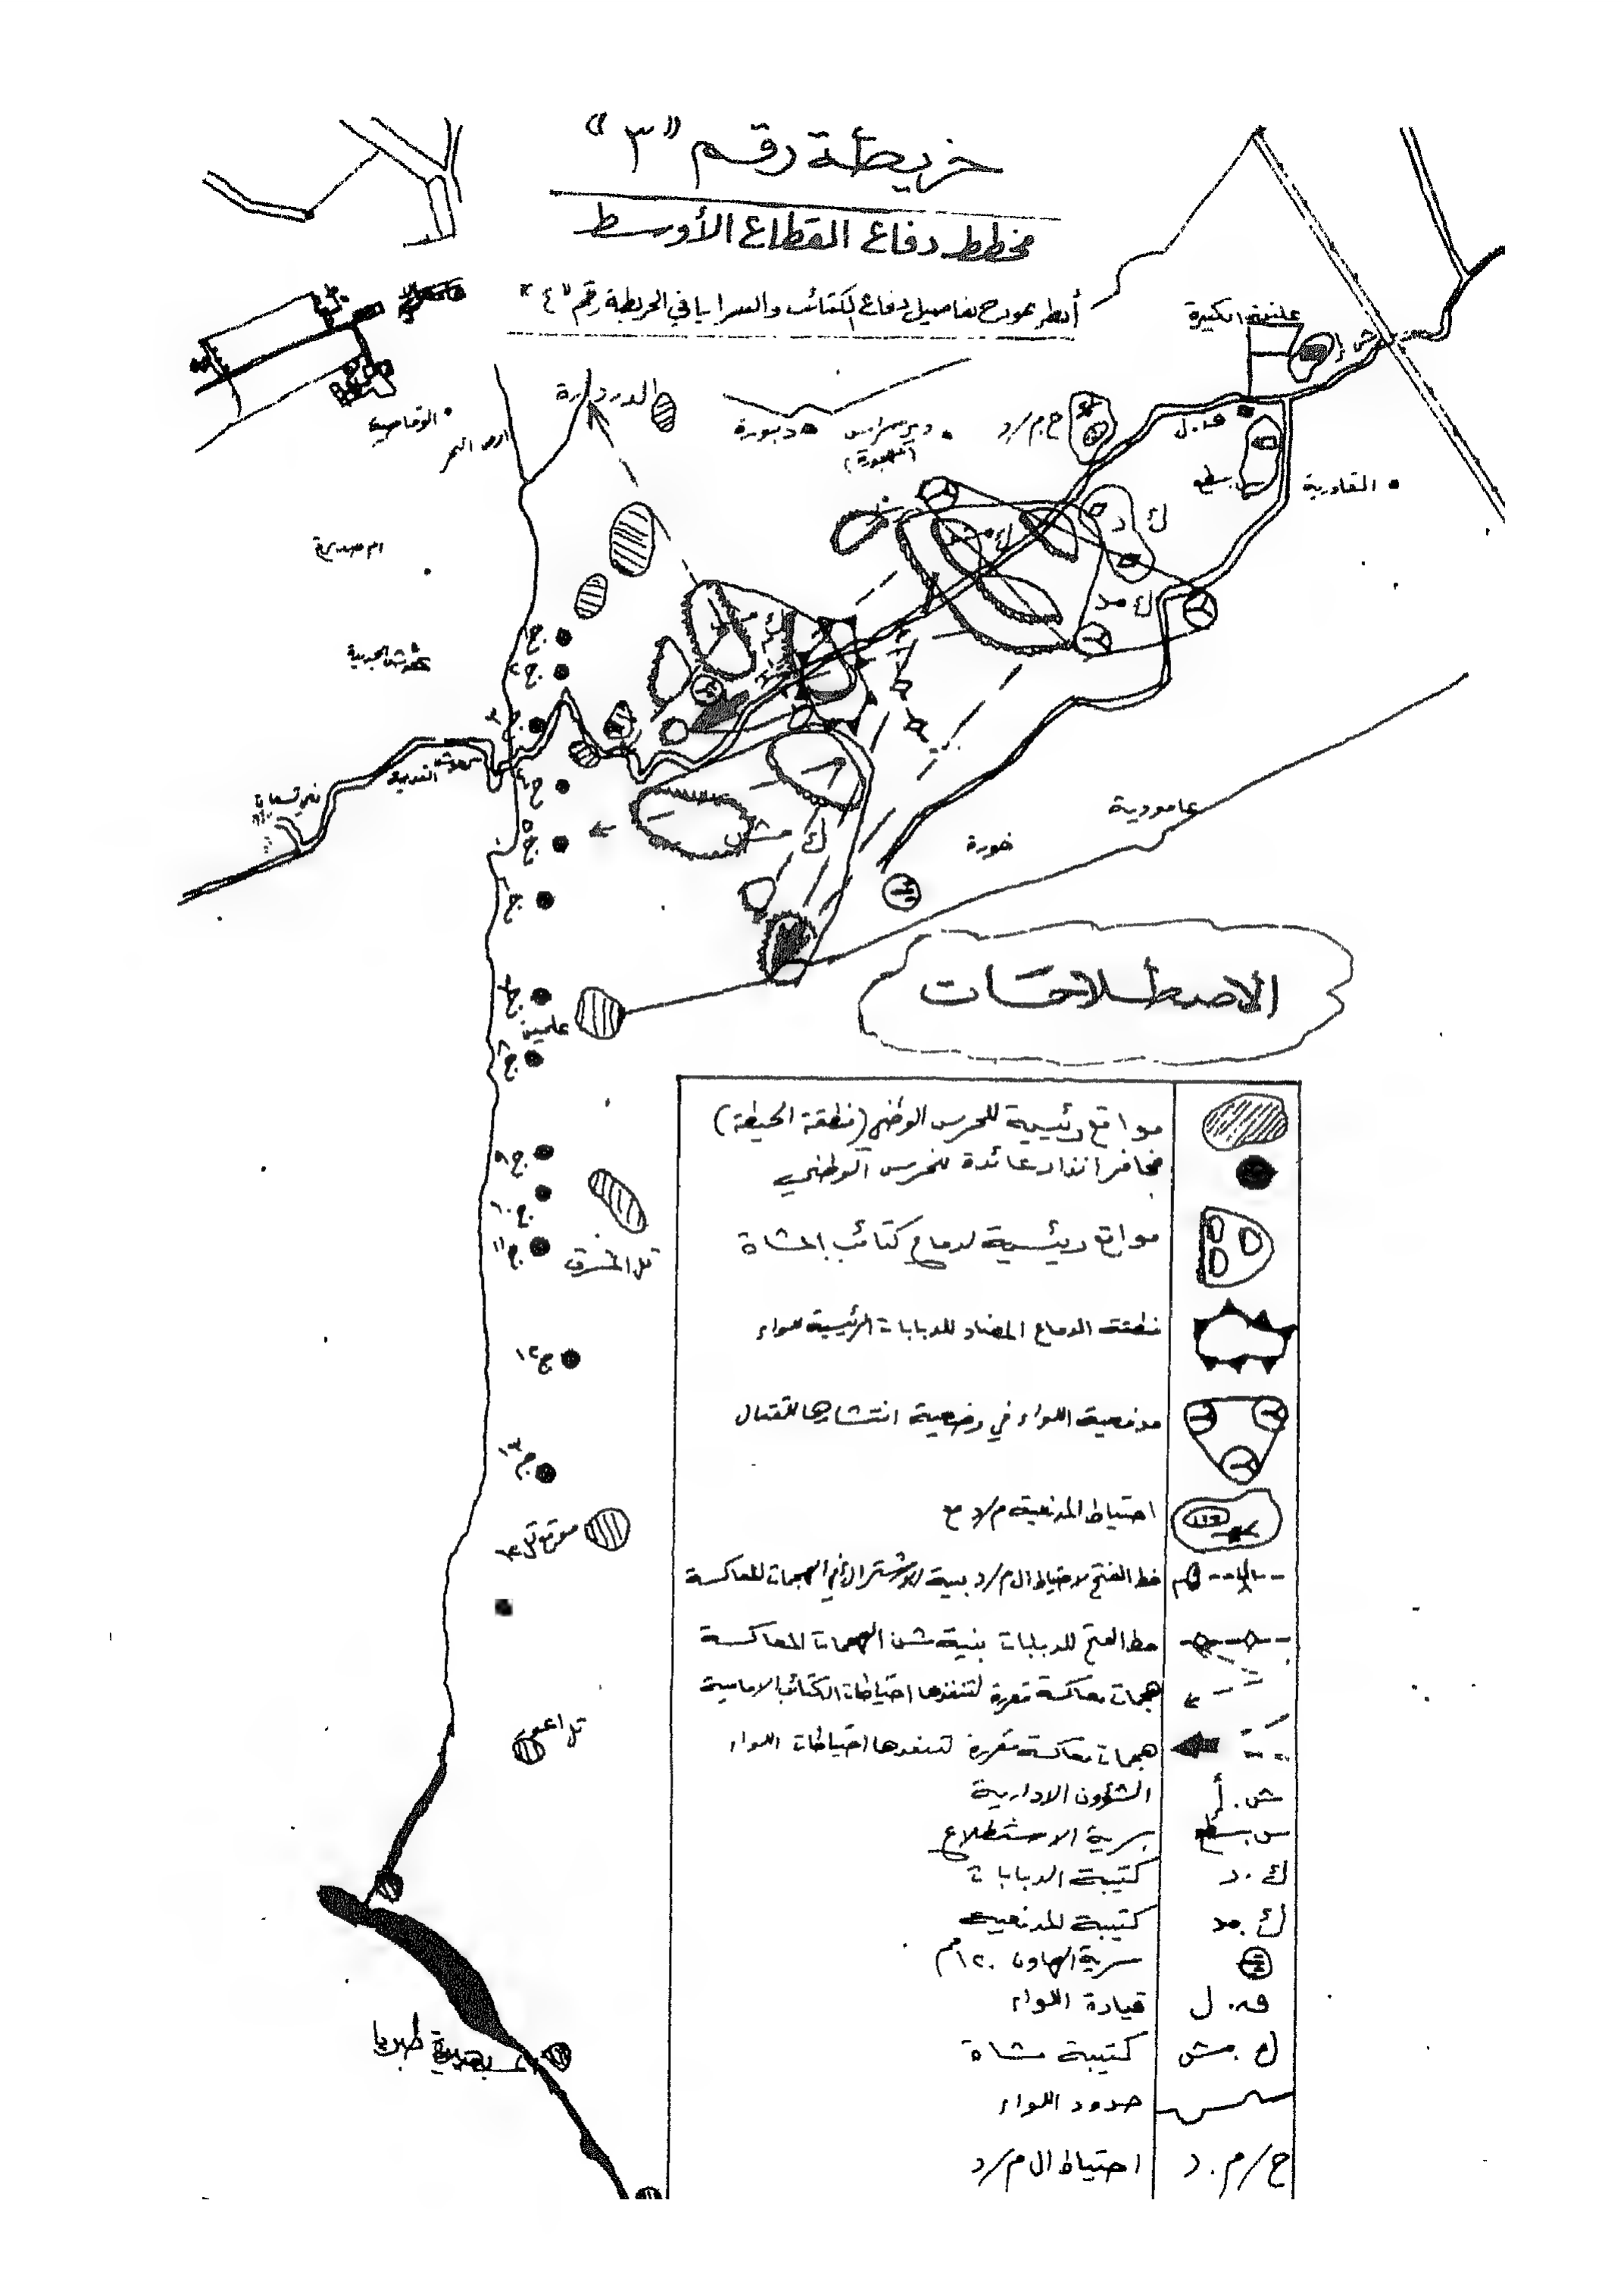 خريطة رقم "٣"
مخطط دفاع القطاع الأوسط
أنظر نموذج تفاصيل دفاع الكتائب والسرايا في الخريطة رقم "٤"
عليقة الكبيرة
ش.أ
الدردارة
ح.م/د
دبورة
دير سراس
ق.ل
القادرية
س.سطع
ك.د
ك.مد
ك.مش
ج١
ج٢
ج٣
ج٤
ج٥
ج٦
ك.مش
عامودية
خورة
ج٧
علمين
ج٨
ج٩
ج١٠
ج١١
تل المشرف
ج١٢
ج١٣
تل اعور
بحيرة طبريا
الاصطلاحات
مواقع رئيسية للحرس الوطني (منطقة الحيطة)
مخافر انذار عائدة للحرس الوطني
مواقع رئيسية لدفاع كتائب المشاة
منطقة الدفاع المضاد للدبابات الرئيسية للواء
مدفعية اللواء في وضعية انتشارها للقتال
احتياط المدفعية م/د ح
خط الفتح لاحتياط ال م/د بنية الاشتراك في الهجمات المعاكسة
خط الفتح للدبابات بنية شن الهجمات المعاكسة
هجمات معاكسة مقررة لتنفذها احتياطات الكتائب الامامية
هجمات معاكسة مقررة لتنفذها احتياطات اللواء
ش.أ الشؤون الادارية
س.سطع سرية الاستطلاع
ك.د كتيبة الدبابات
ك.مد كتيبة المدفعية
سرية الهاون ١٢٠مم
ق.ل قيادة اللواء
ك.مش كتيبة مشاة
حدود اللواء
ح/م.د احتياط ال م/د